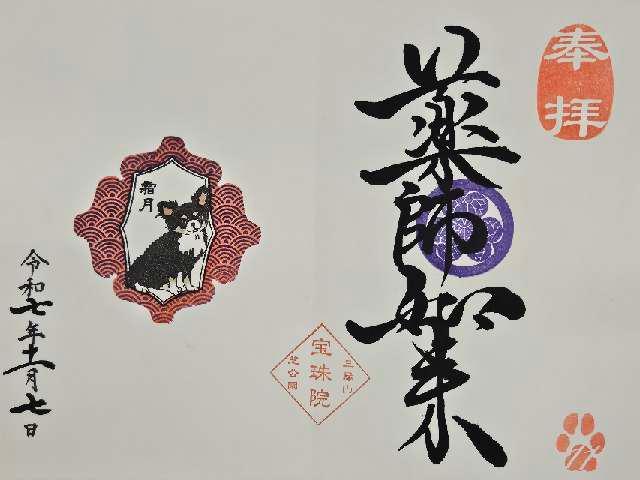 奉拝
薬師如来
三縁山
宝珠院
芝公園
霜月
令和七年十一月七日